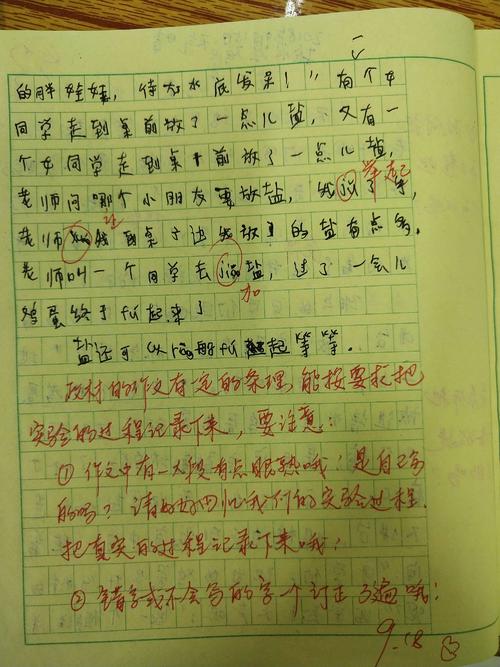 的胖娃娃，待在水底发呆！”有个女
同学走到桌前放了一点儿盐，又有一
个女同学走到桌前放了一点儿盐，
老师问哪个小朋友要放盐，我了手， 举起
老师 我到桌子边我放的盐有点多。 让
老师叫一个同学去 盐，过了一会儿 加
鸡蛋终于 起来了
盐还可以 起等等。
政材的作文有一定的条理，能按要求把
实验的过程记录下来，要注意：
① 作文中有一大段有点眼熟哦！是自己写
的吗？请好好回忆我们的实验过程，
把真实的过程记录下来哦！
② 错字或不会写的字一个订正3遍哦！
9.18